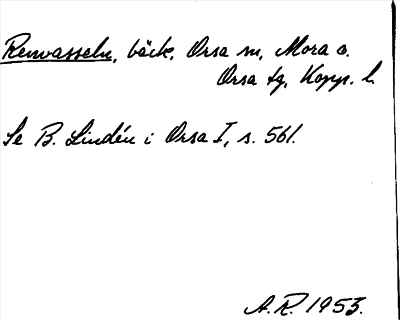 Renvasseln, bäck, Orsa sn, Mora o.
Orsa tg, Kopp. l.
Se B. Lindén i Orsa I, s. 561.
A.R. 1953.